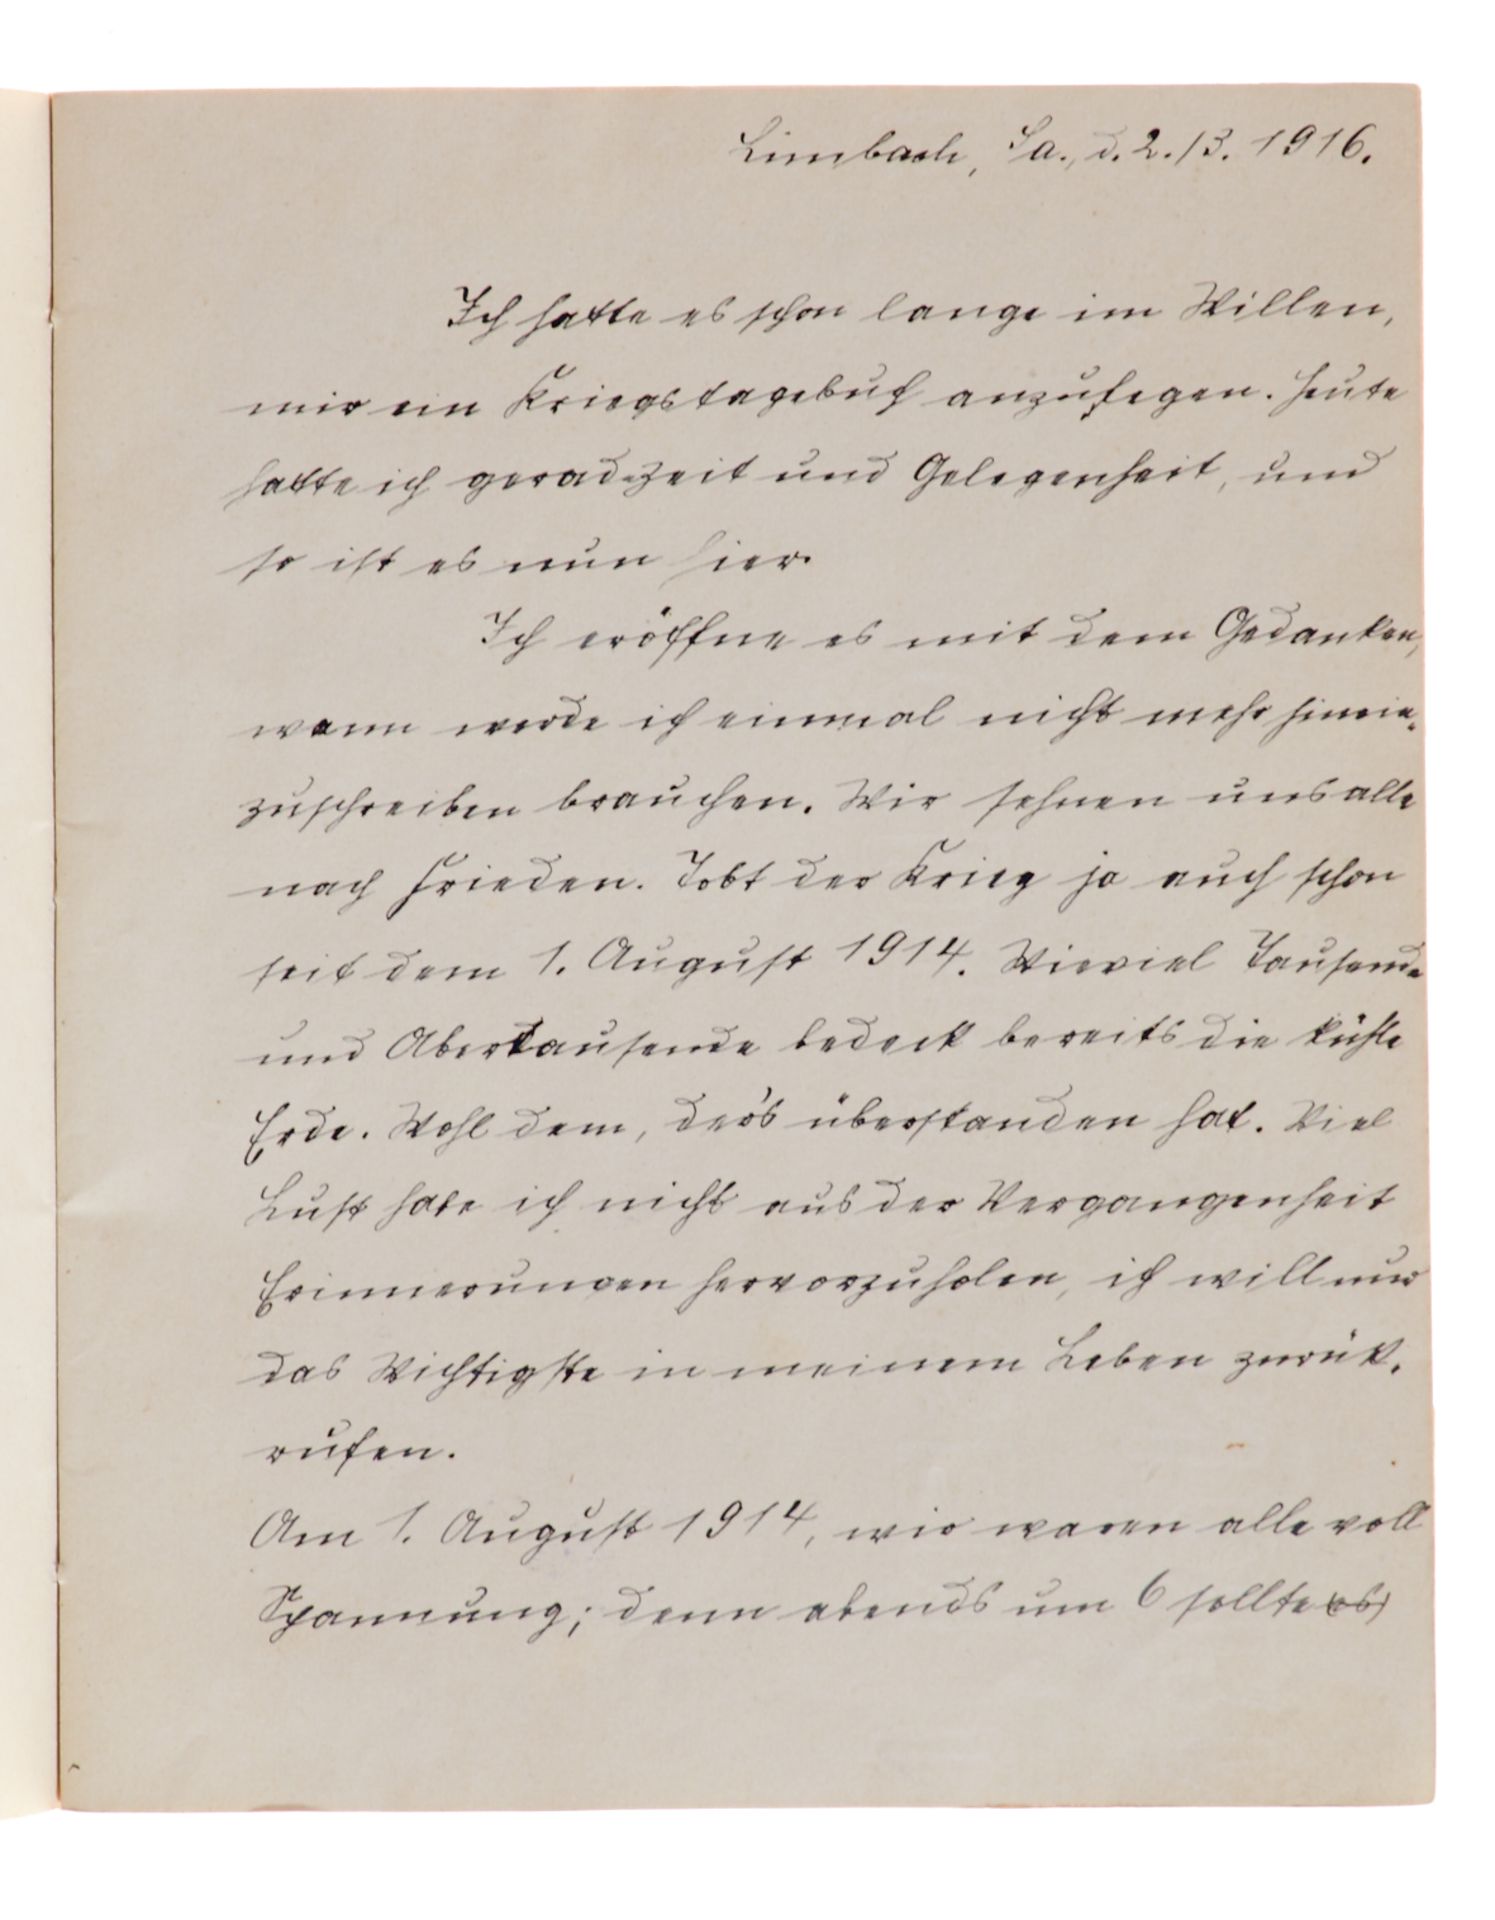 Limbach, Sa., d. 2./3. 1916.
Ich hatte es schon lange im Willen,
mir ein Kriegstagebuch anzulegen. Heute
hatte ich gerad Zeit und Gelegenheit, und
so ist es nun hier.
Ich eröffne es mit dem Gedanken,
wann werde ich einmal nicht mehr hinein-
zuschreiben brauchen. Wir sehnen uns alle
nach Frieden. Tobt der Krieg ja auch schon
seit dem 1. August 1914. Wieviel Tausende
und Abertausende bedeck bereits die kühle
Erde. Wohl dem, der's überstanden hat. Viel
Lust habe ich nicht aus der Vergangenheit
Erinnerungen hervorzuholen, ich will nur
das Wichtigste in meinem Leben zurük-
rufen.
Am 1. August 1914, wir waren alle voll
Spannung; denn abends um 6 sollte (es)